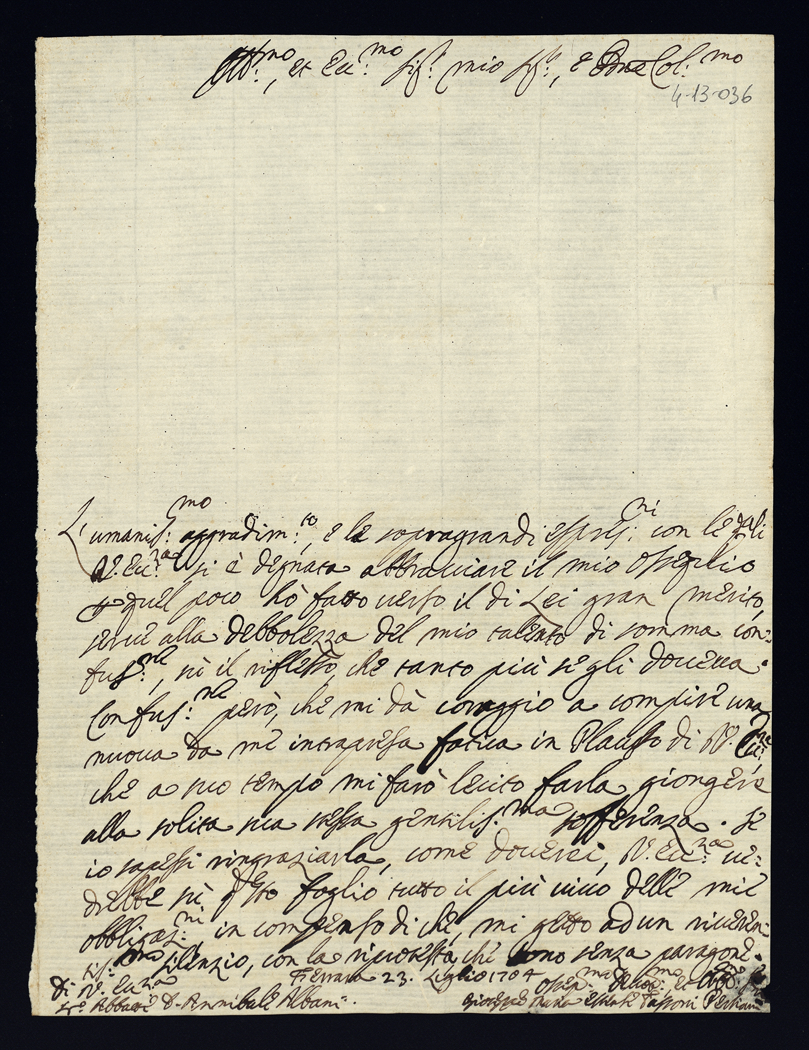 Ill:mo, et Ecc:mo Sig:r mio Sig:r, e Pne Col:mo
4-13-036
L'umaniss:mo aggradim:to, e le sopragrandi espres:ni con le quali
V. Ecc:za si è degnata abbracciare il mio Osseqlio
quel poco hò fatto verso il di Lei gran merito,
serve alla debbolezza del mio talento di somma con:
fus:ne, sù il riflesso, che tanto più se gli doveva.
Confus:ne però, che mi dà coraggio a compire una
nuova da me intrapresa fatica in Plauso di V. Ecc:za
che a suo tempo mi farò lecito farla giongere
alla solita sua stessa gentilis:ma sofferenza. Se
io sapessi ringraziarla, come doverei, V. Ecc:za ve:
drebbe sù q'sto foglio tutto il più vivo delle mie
obbligaz:ni in compenso di che, mi getto ad un riveren:
tis:mo silenzio, con la riprotesta, che sono senza paragone.
Di V. Ecc:za Ferrara 23. Luglio 1704
Sr. Abbate D. Annibale Albani. Gioseppe Maria Estense Tassoni